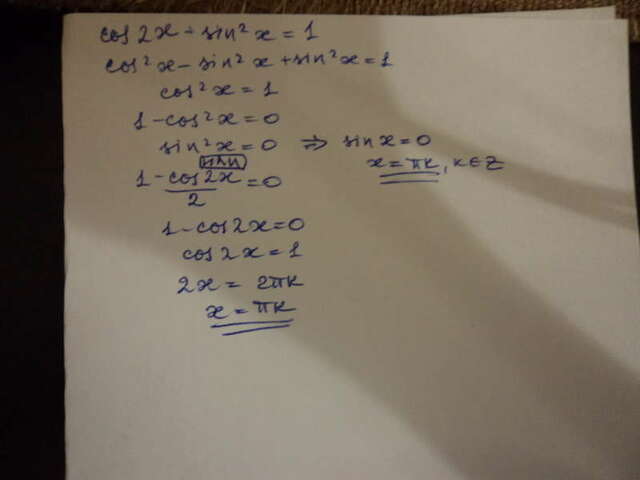 cos 2x + sin²x = 1
cos²x - sin²x + sin²x = 1
cos²x = 1
1 - cos²x = 0
sin²x = 0 ⇒ sin x = 0
x = πk, k ∈ Z
или
1 - cos2x = 0
2
1 - cos2x = 0
cos 2x = 1
2x = 2πk
x = πk